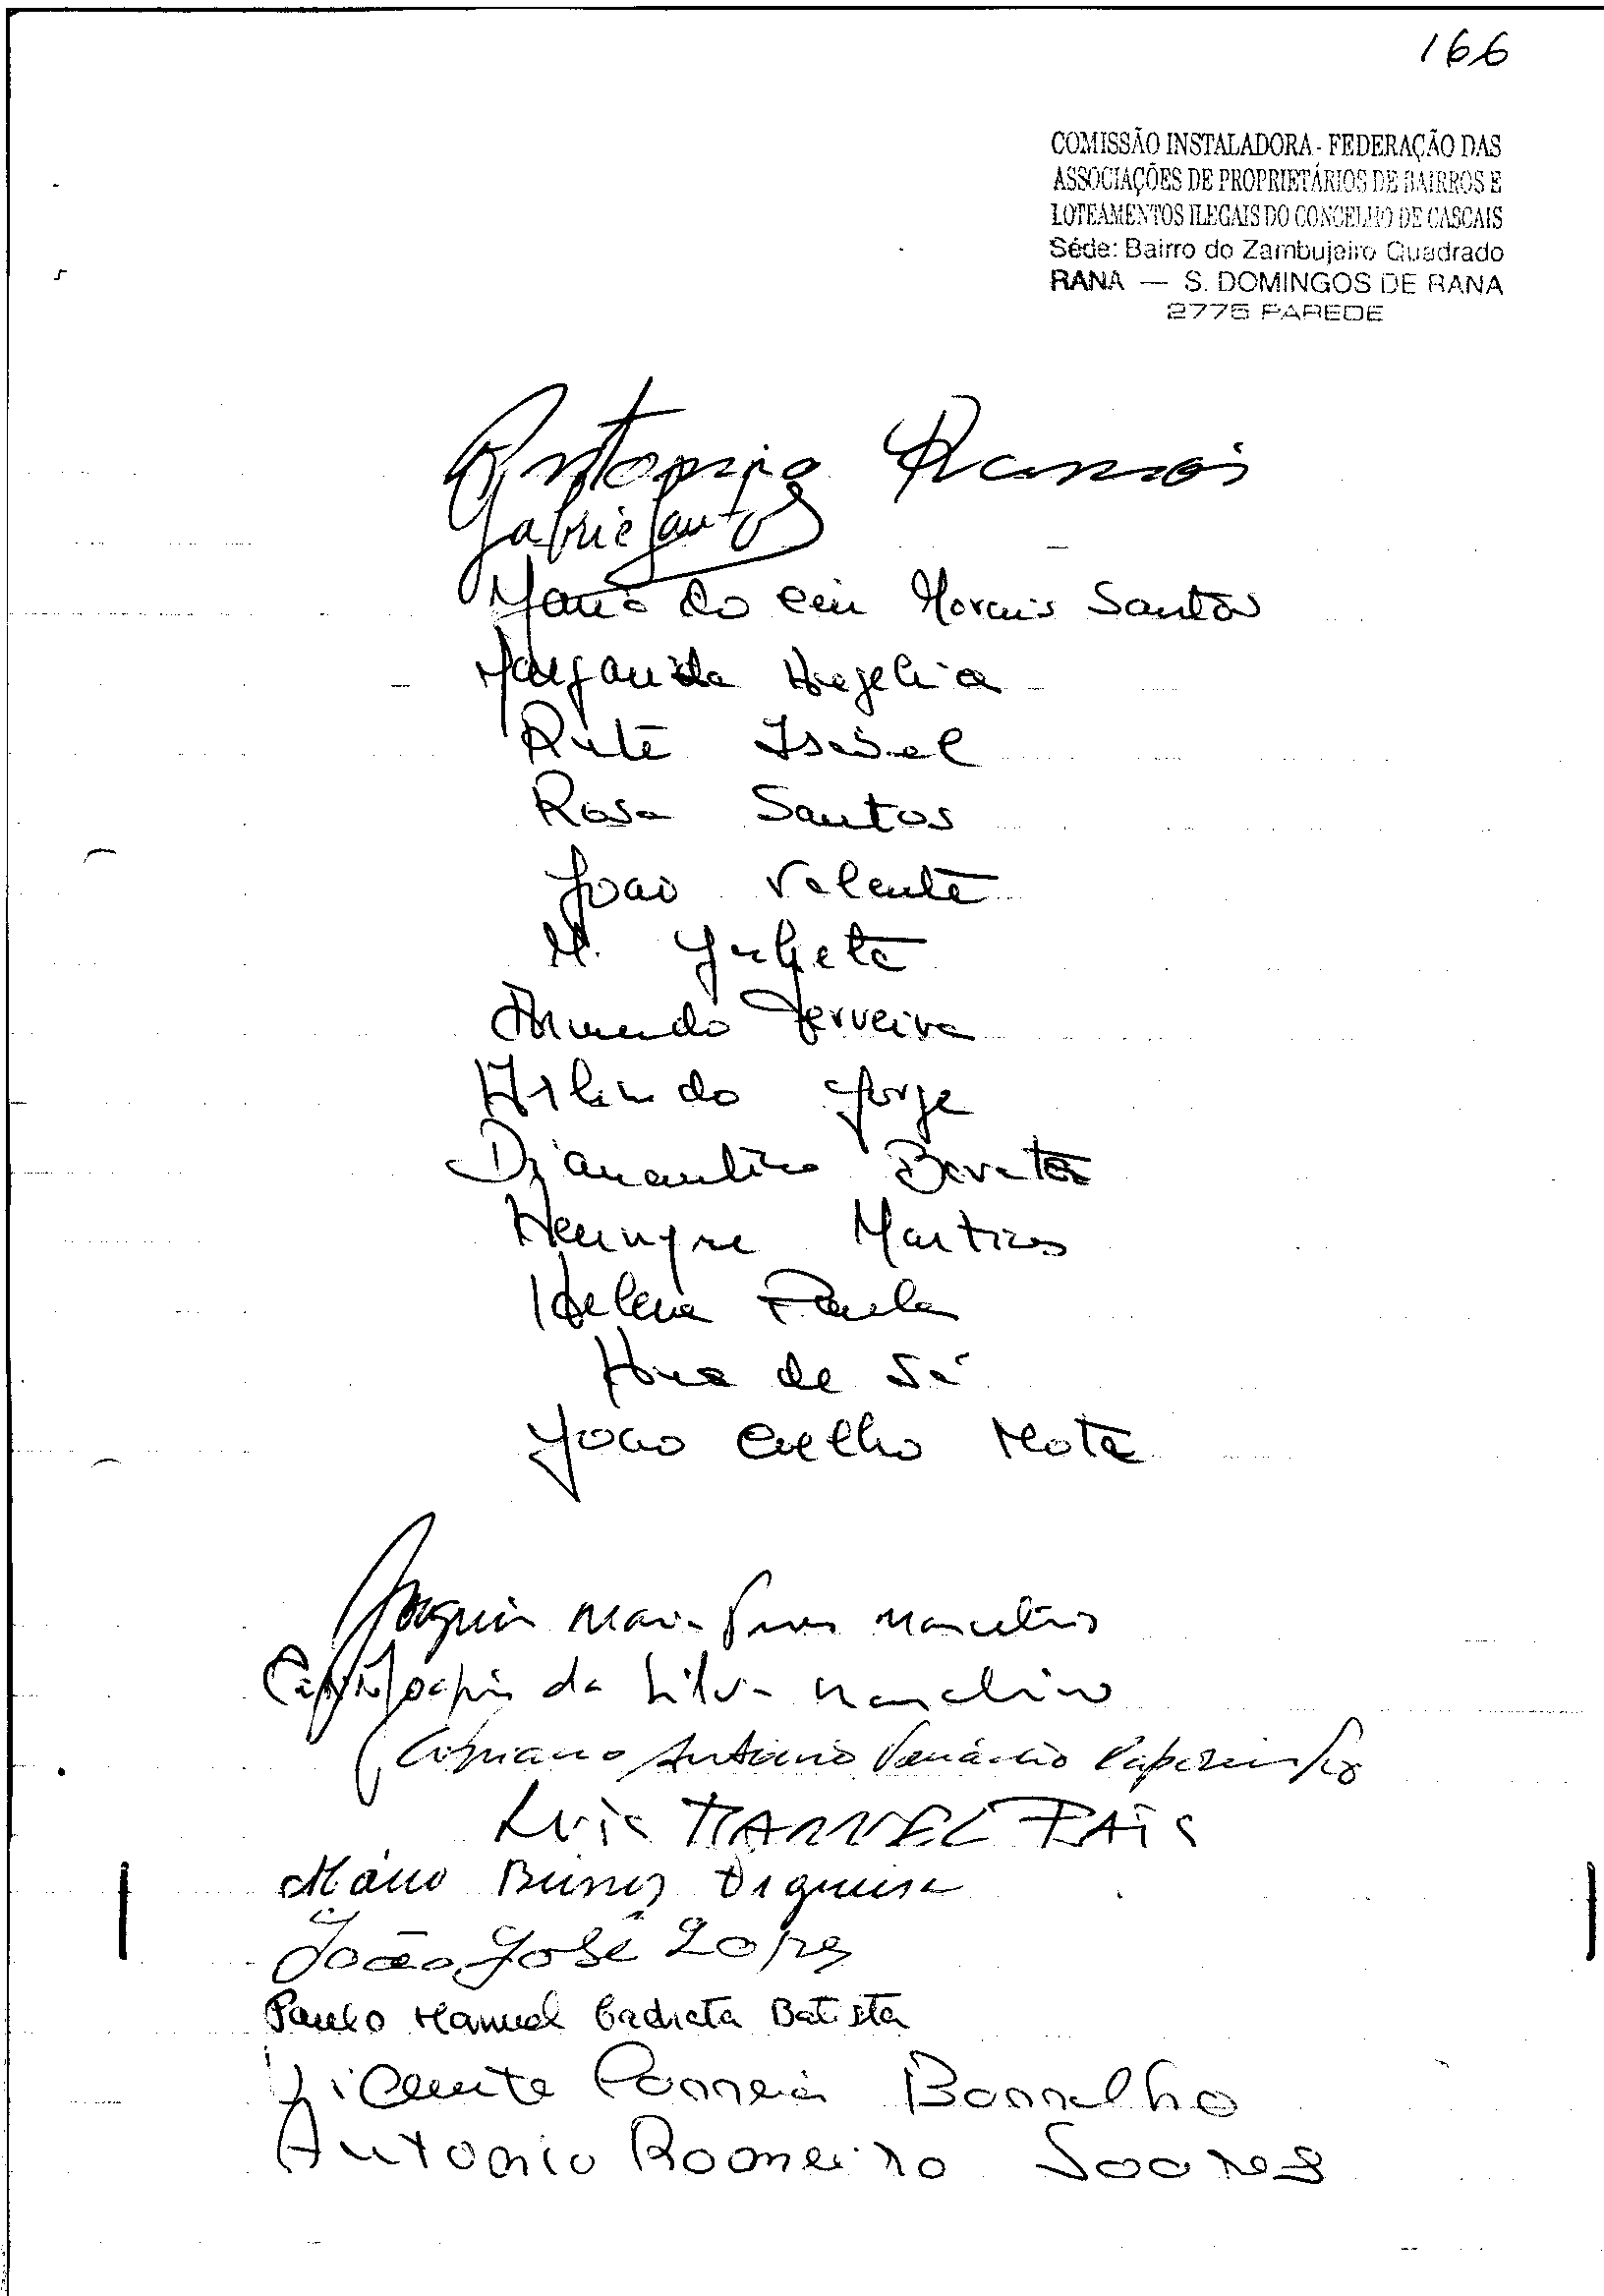 166
COMISSÃO INSTALADORA - FEDERAÇÃO DAS
ASSOCIAÇÕES DE PROPRIETÁRIOS DE BAIRROS E
LOTEAMENTOS ILEGAIS DO CONCELHO DE CASCAIS
Séde: Bairro do Zambujeiro Quadrado
RANA — S. DOMINGOS DE RANA
2775 PAREDE
Antonio Ramos
Gabriel Santos
Maria do Céu Morais Santos
Margarida Angelica
Rute Isabel
Rosa Santos
Joao Valente
M. Julieta
Armando Ferreira
Arlindo Jorge
Diamantino Barata
Henrique Martins
Helena Paula
Ana de Sá
Joao Coelho Mota
Joaquim Maria Marcelino
Joaquim da Silva Marcelino
Cipriano Antonio
Luis MANUEL PAIS
Mário
João José Lopes
Paulo Manuel Batista
Vicente Correia Borralho
Antonio Romeiro Soares